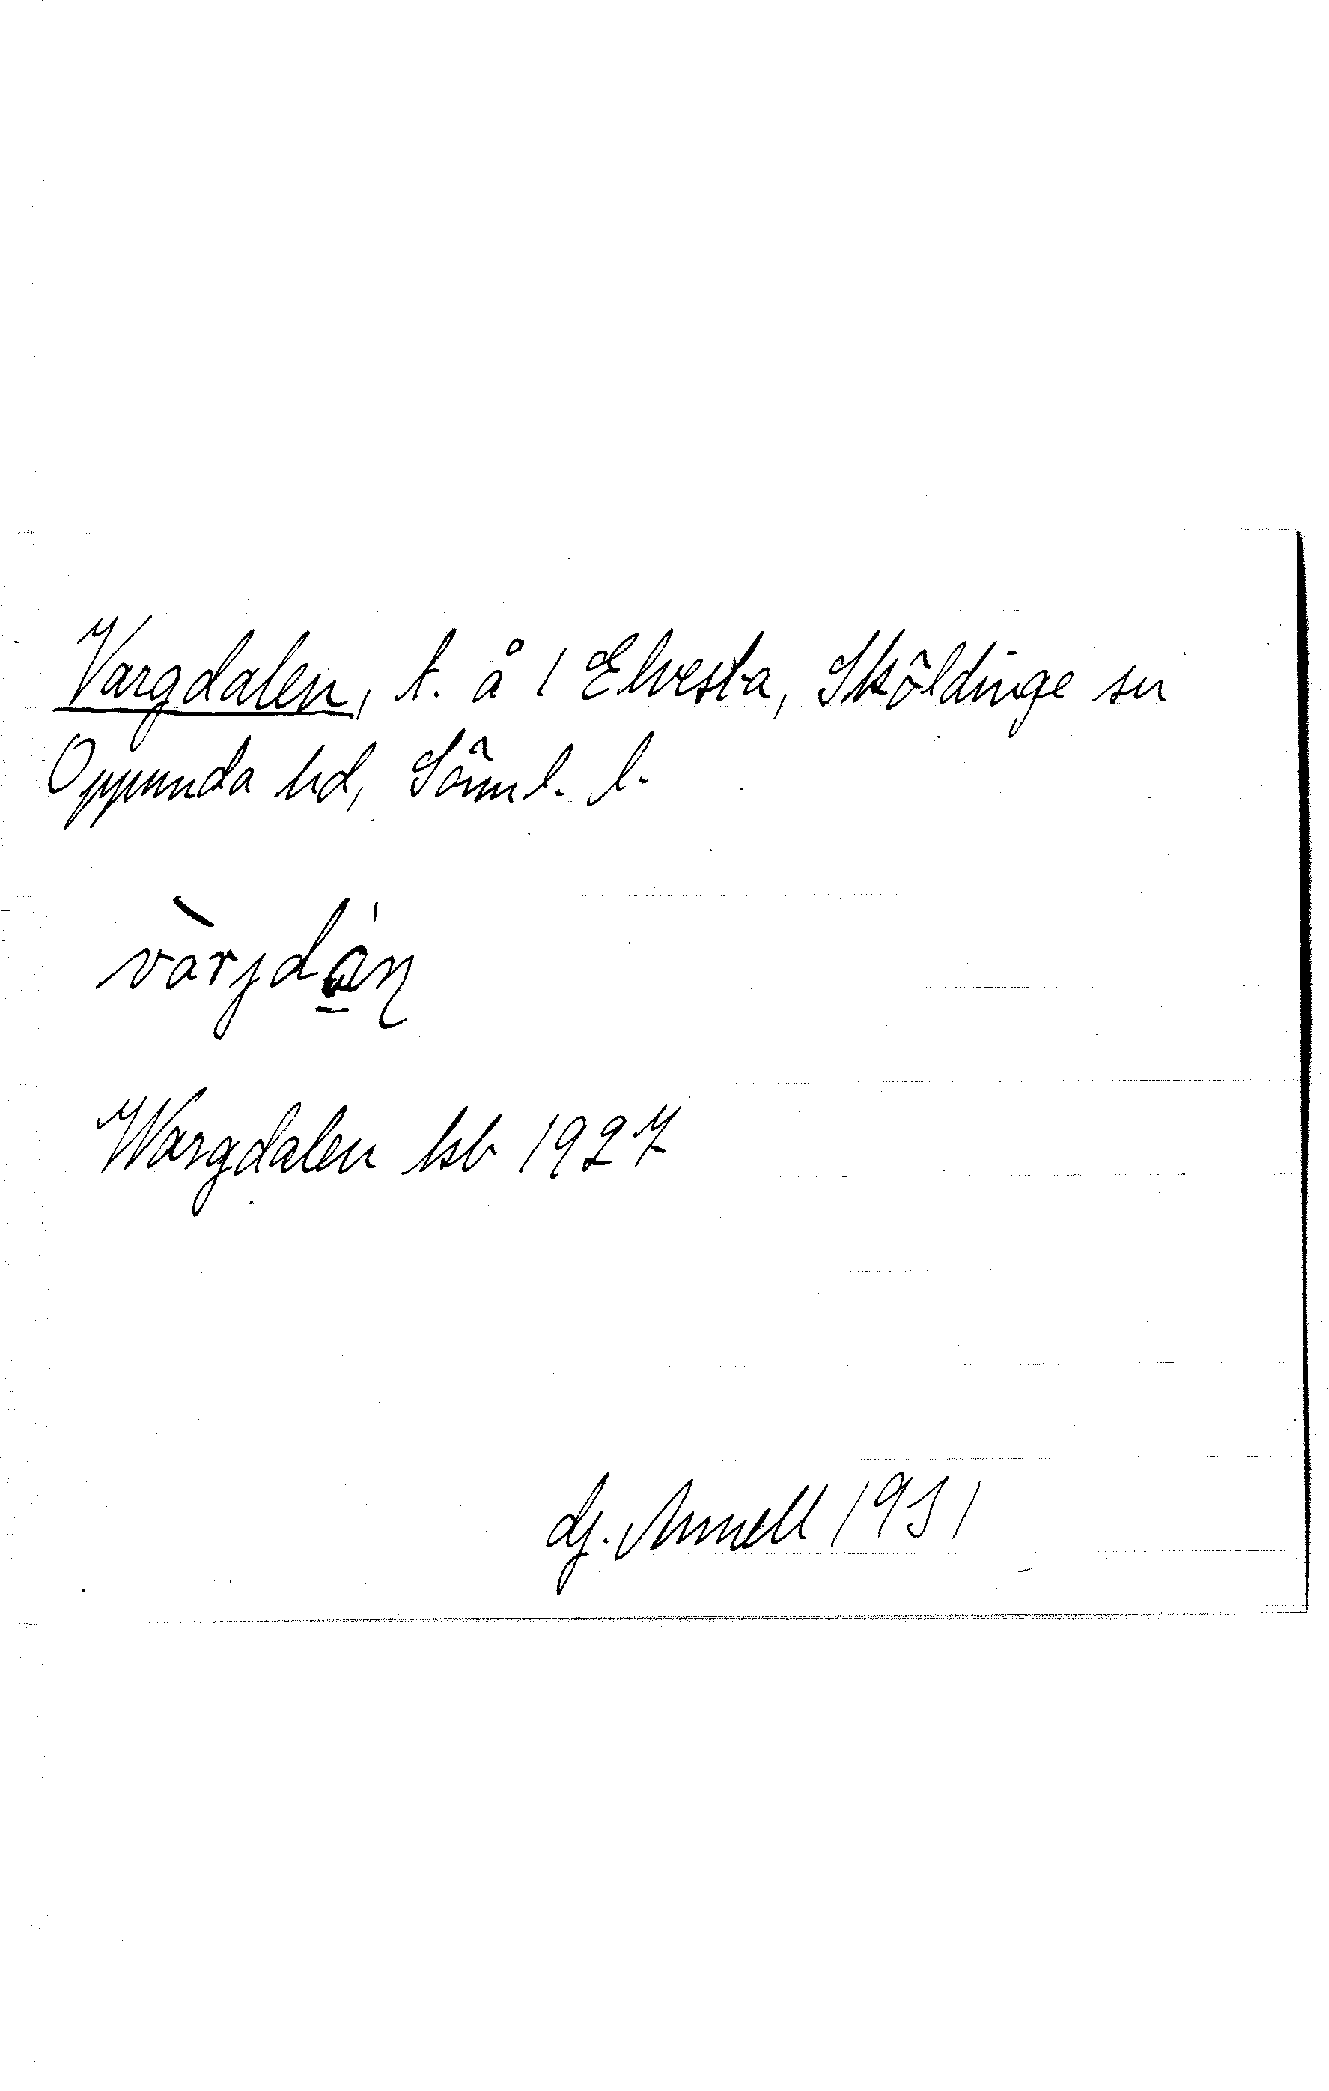 Vargdalen, t. å 1 Elvesta, Sköldinge sn
Oppunda hd, Söml. l.
vàrjdán
Wargdalen ksb 1927
dj. Annell 1931